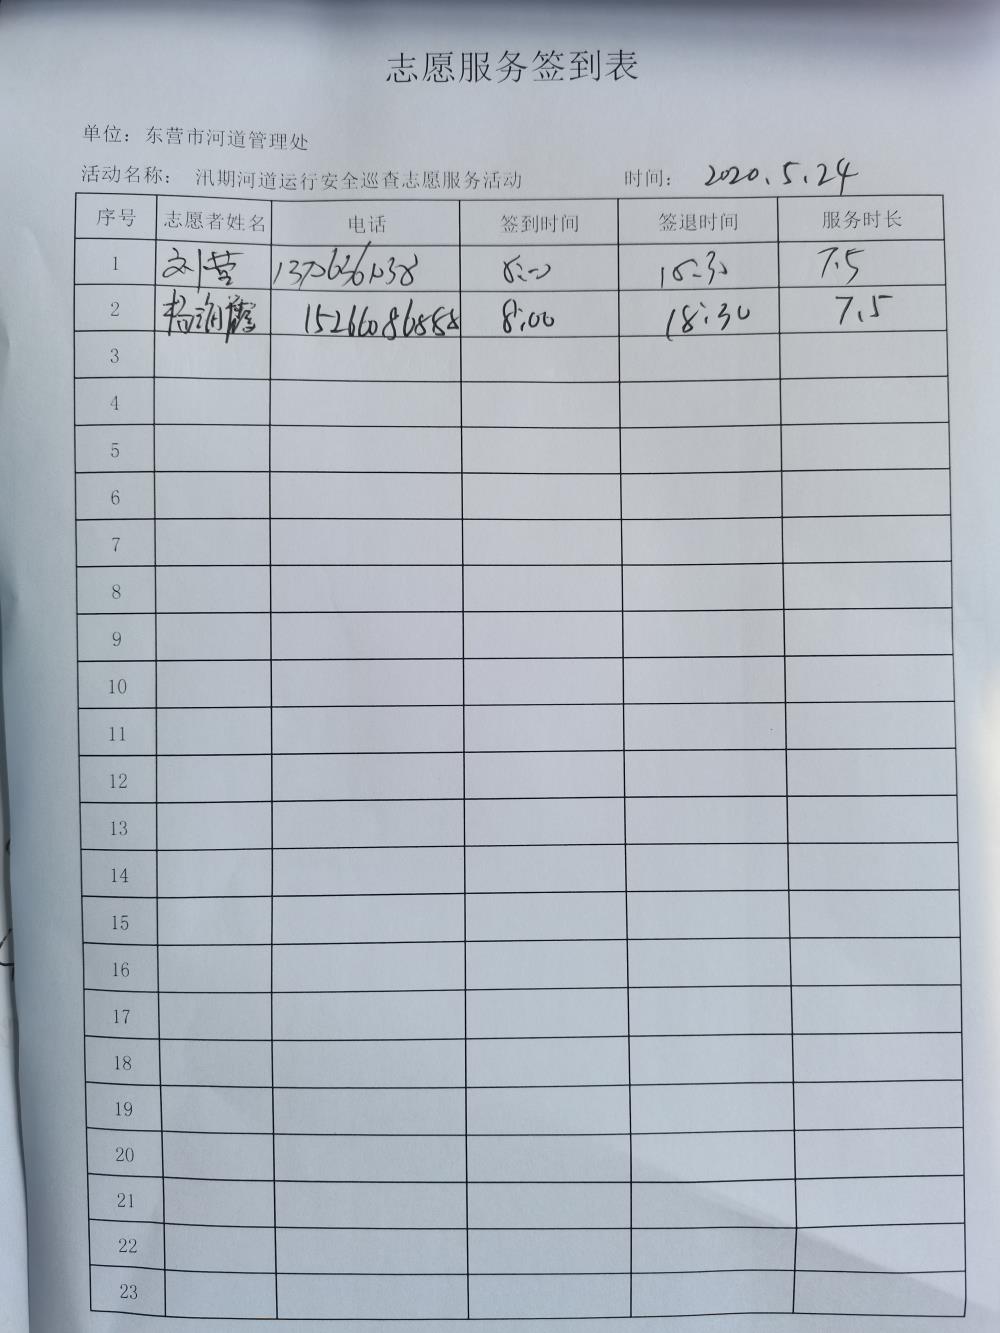 志愿服务签到表
单位：东营市河道管理处
活动名称： 汛期河道运行安全巡查志愿服务活动 时间：2020.5.24
序号 志愿者姓名 电话 签到时间 签退时间 服务时长
1 刘营 8:00 18:30 7.5
2 杨润霞 15266086888 8:00 18:30 7.5
3
4
5
6
7
8
9
10
11
12
13
14
15
16
17
18
19
20
21
22
23